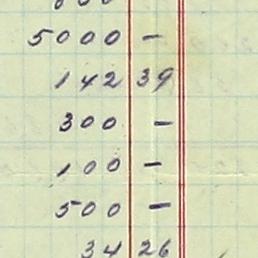 5000 –
142 39
300 –
100 –
500 –
34 26